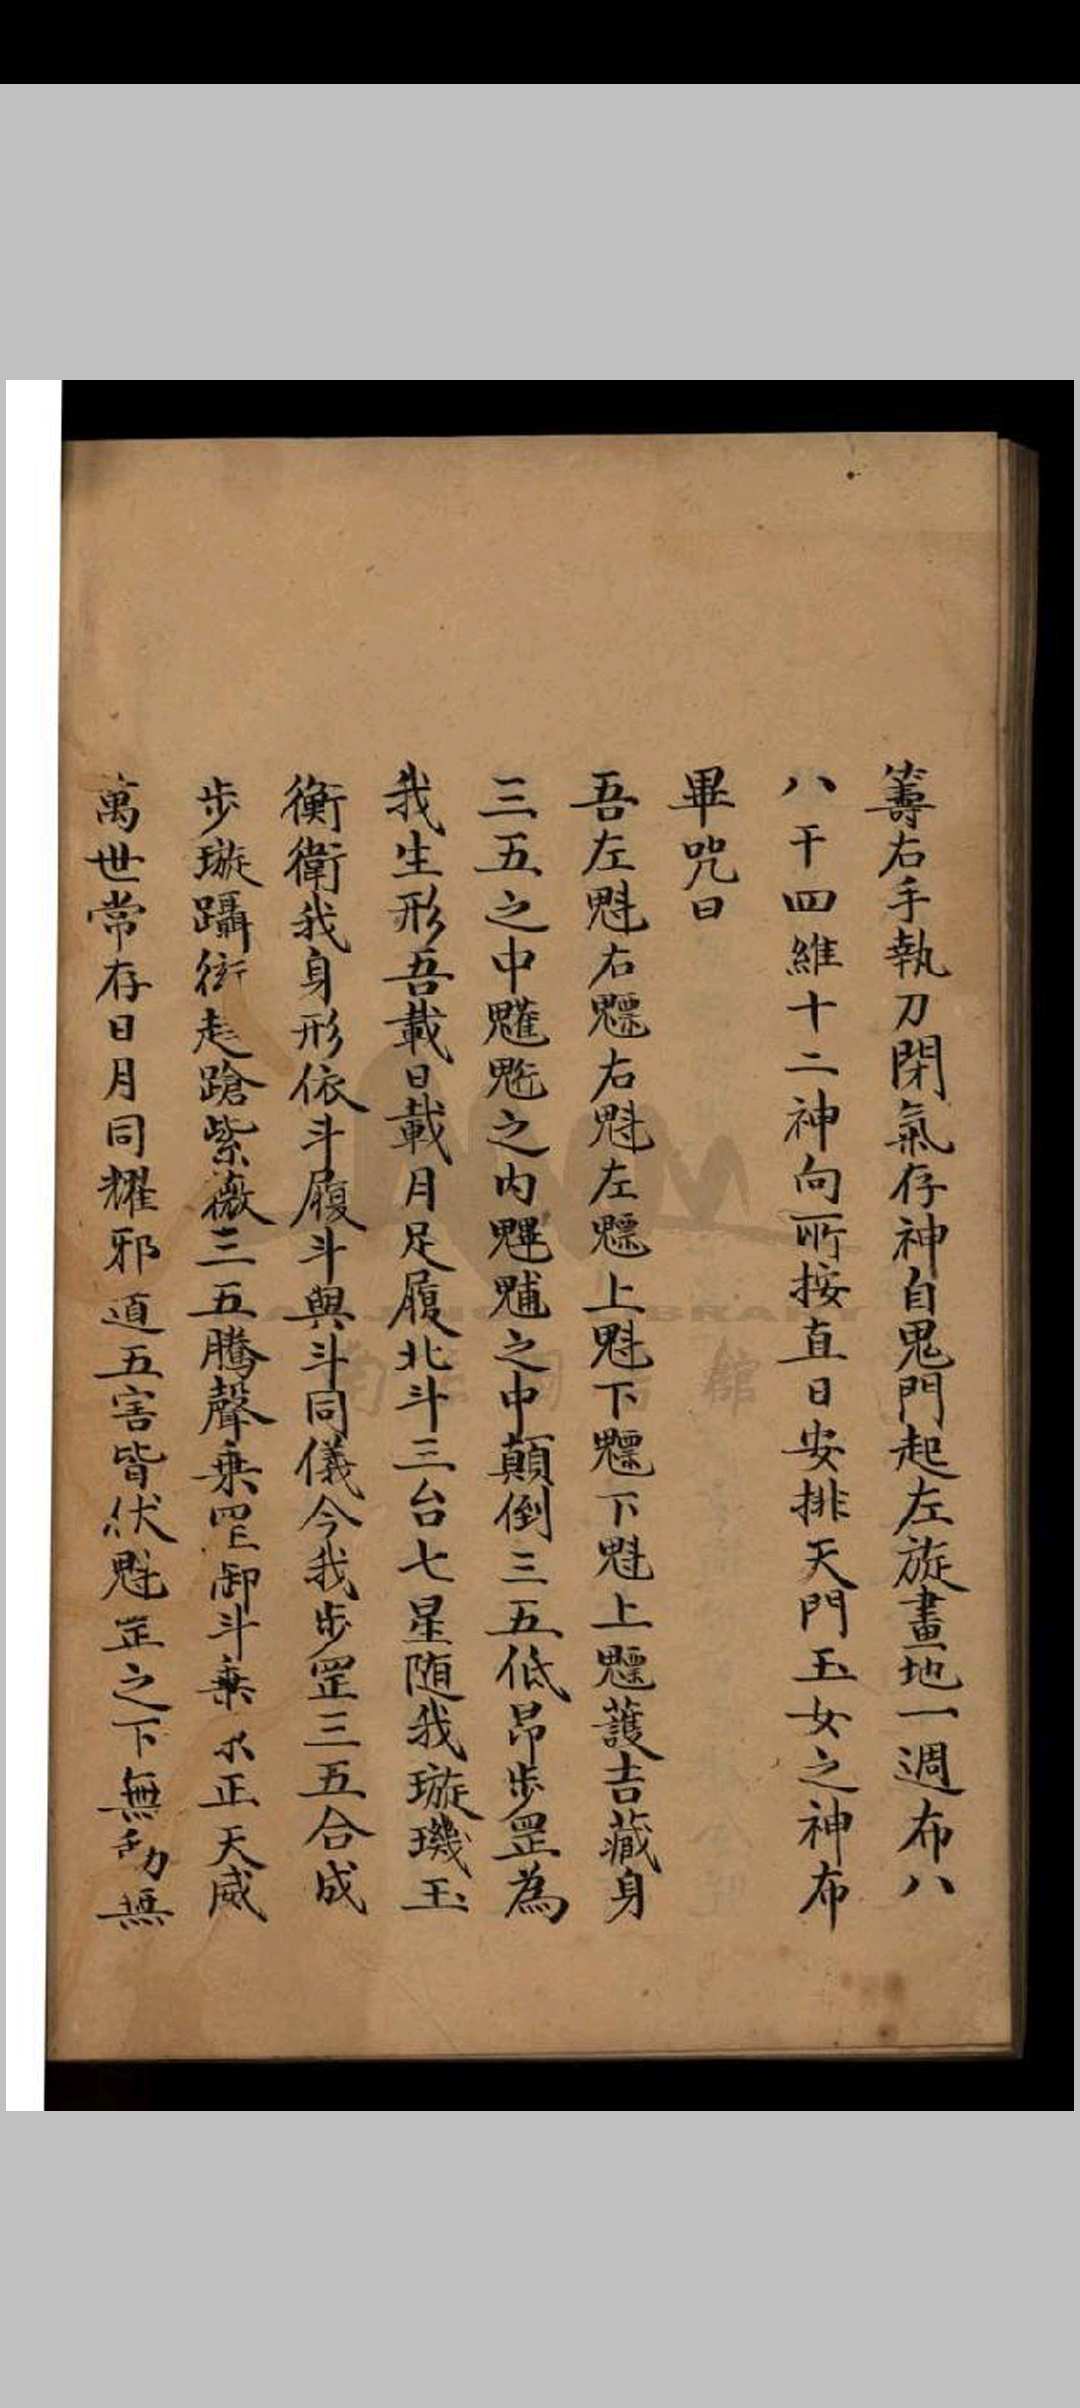 籌右手執刀閉氣存神自鬼門起左旋畫地一週布八
八干四維十二神向所按直日安排天門玉女之神布
畢咒曰
吾左魁右魒右魁左魒上魁下魒下魁上魒護吉藏身
三五之中魓魀之内魓魖之中顛倒三五低昂步罡為
我生形吾載日載月足履北斗三台七星随我璇璣玉
衡衛我身形依斗履斗與斗同儀今我步罡三五合成
步璇躡衒走蹌紫薇三五騰聲乗罡卸斗乗水正天威
萬世常存日月同耀邪道五害皆伏魁罡之下無動無
南京圖書館
LIBRARY